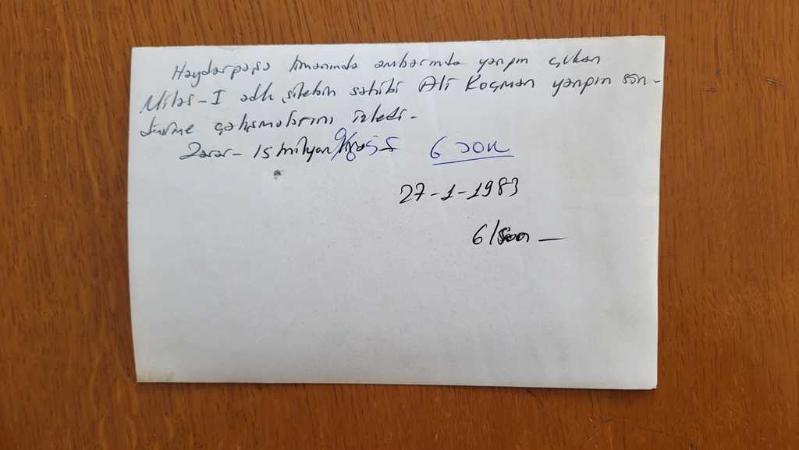 Haydarpaşa limanında ambarında yangın çıkan
Milas-I adlı şilebin sahibi Ali Koçman yangın sön-
dürme çalışmalarını izledi-
Zarar- 15 milyon
6 son
27-1-1983
6/son